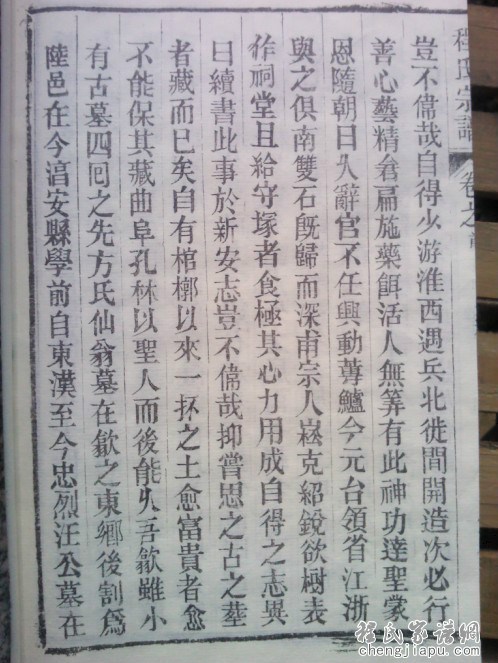 程氏宗譜 卷之
豈不偉哉自得少游淮西遇兵北徙間開造次必行
善心藝精倉扁施藥餌活人無筭有此神功達聖裳
恩隨朝日久辭官不任興動蓴鱸今元台領省江浙
與之俱南雙石旣歸而深甫宗人嶷克紹銳欲樹表
作祠堂且給守塚者食極其心力用成自得之志異
日續書此事於新安志豈不偉哉抑嘗思之古之塟
者藏而已矣自有棺槨以來一抔之土愈富貴者愈
不能保其藏曲阜孔林以聖人而後能久吾歙雖小
有古墓四囘之先方氏仙翁墓在歙之東鄉後割爲
陸邑在今淯安縣學前自東漢至今忠烈汪公墓在
程氏家譜網
chengjiapu.com